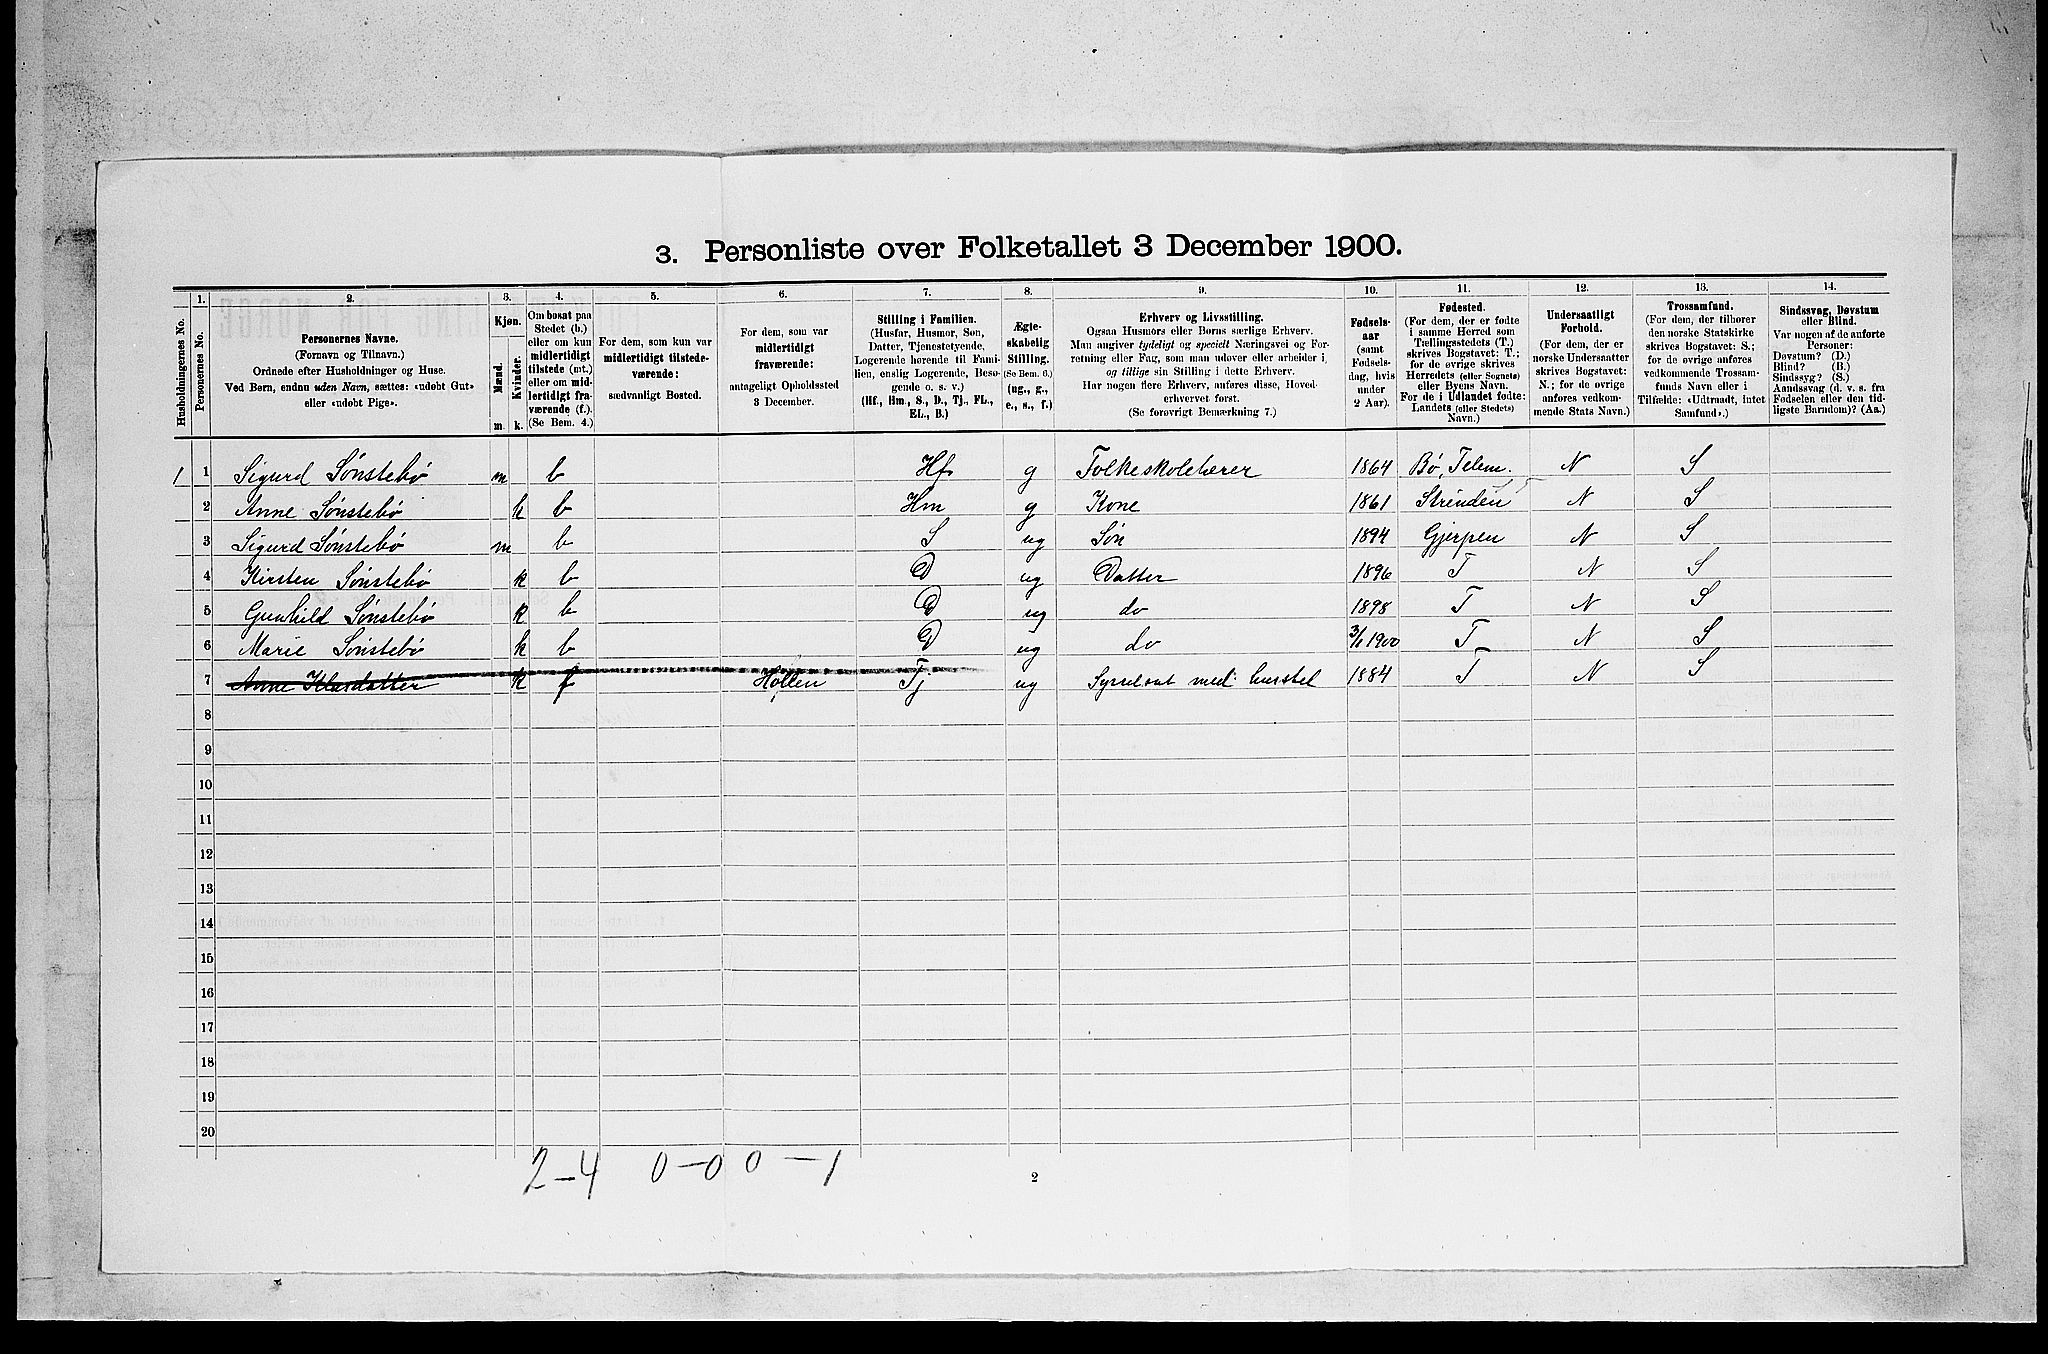 3. Personliste over Folketallet 3 December 1900.
Husholdningernes No.
1. Personernes No.
2. Personernes Navne. (Fornavn og Tilnavn.) Ordnede efter Husholdninger og Huse. Ved Børn, endnu uden Navn, sættes: «udøbt Gut» eller «udøbt Pige».
3. Kjøn. Mænd. m. Kvinder. k.
4. Om bosat paa Stedet (b.) eller om kun midlertidigt tilstede (mt.) eller om midlertidigt fraværende (f.). (Se Bem. 4.)
5. For dem, som kun var midlertidigt tilstedeværende: sædvanligt Bosted.
6. For dem, som var midlertidigt fraværende: antageligt Opholdssted 3 December.
7. Stilling i Familien. (Husfar, Husmor, Søn, Datter, Tjenestetyende, Logerende hørende til Familien, enslig Logerende, Besøgende o. s. v.) (Hf., Hm., S., D., Tj., FL., EL., B.)
8. Ægteskabelig Stilling. (Se Bem. 6.) (ug., g., e., s., f.)
9. Erhverv og Livsstilling. Ogsaa Husmors eller Børns særlige Erhverv. Man angiver tydeligt og specielt Næringsvei og Forretning eller Fag, som man udøver eller arbeider i, og tillige sin Stilling i dette Erhverv. Har nogen flere Erhverv, anføres disse, Hovederhvervet først. (Se forøvrigt Bemærkning 7.)
10. Fødselsaar (samt Fødselsdag, hvis under 2 Aar).
11. Fødested. (For dem, der er fødte i samme Herred som Tællingsstedets (T.) skrives Bogstavet: T.; for de øvrige skrives Herredets (eller Sognets) eller Byens Navn. For de i Udlandet fødte: Landets (eller Stedets) Navn.)
12. Undersaatligt Forhold. (For dem, der er norske Undersaatter skrives Bogstavet: N.; for de øvrige anføres vedkommende Stats Navn.)
13. Trossamfund. (For dem, der tilhører den norske Statskirke skrives Bogstavet: S.; for de øvrige anføres vedkommende Trossamfunds Navn eller i Tilfælde: «Udtraadt, intet Samfund».)
14. Sindssvag, Døvstum eller Blind. Var nogen af de anførte Personer: Døvstum? (D.) Blind? (B.) Sindssyg? (S.) Aandssvag (d. v. s. fra Fødselen eller den tidligste Barndom)? (Aa.)
1 1 Sigurd Sønstebø m b Hf g Folkeskolelærer 1864 Bø, Telem. N S
2 Anne Sønstebø k b Hm g Kone 1861 Strinden N S
3 Sigurd Sønstebø m b S ug Søn 1894 Gjerpen N S
4 Kirsten Sønstebø k b D ug Datter 1896 T N S
5 Gunhild Sønstebø k b D ug do 1898 T N S
6 Marie Sønstebø k b D ug do 3/1 1900 T N S
7 Anne k f Hollen Tj ug Sysselsat med husstel 1884 T N S
8
9
10
11
12
13
14
15
16
17
18
19
20
2-4 0-0 0-1
2